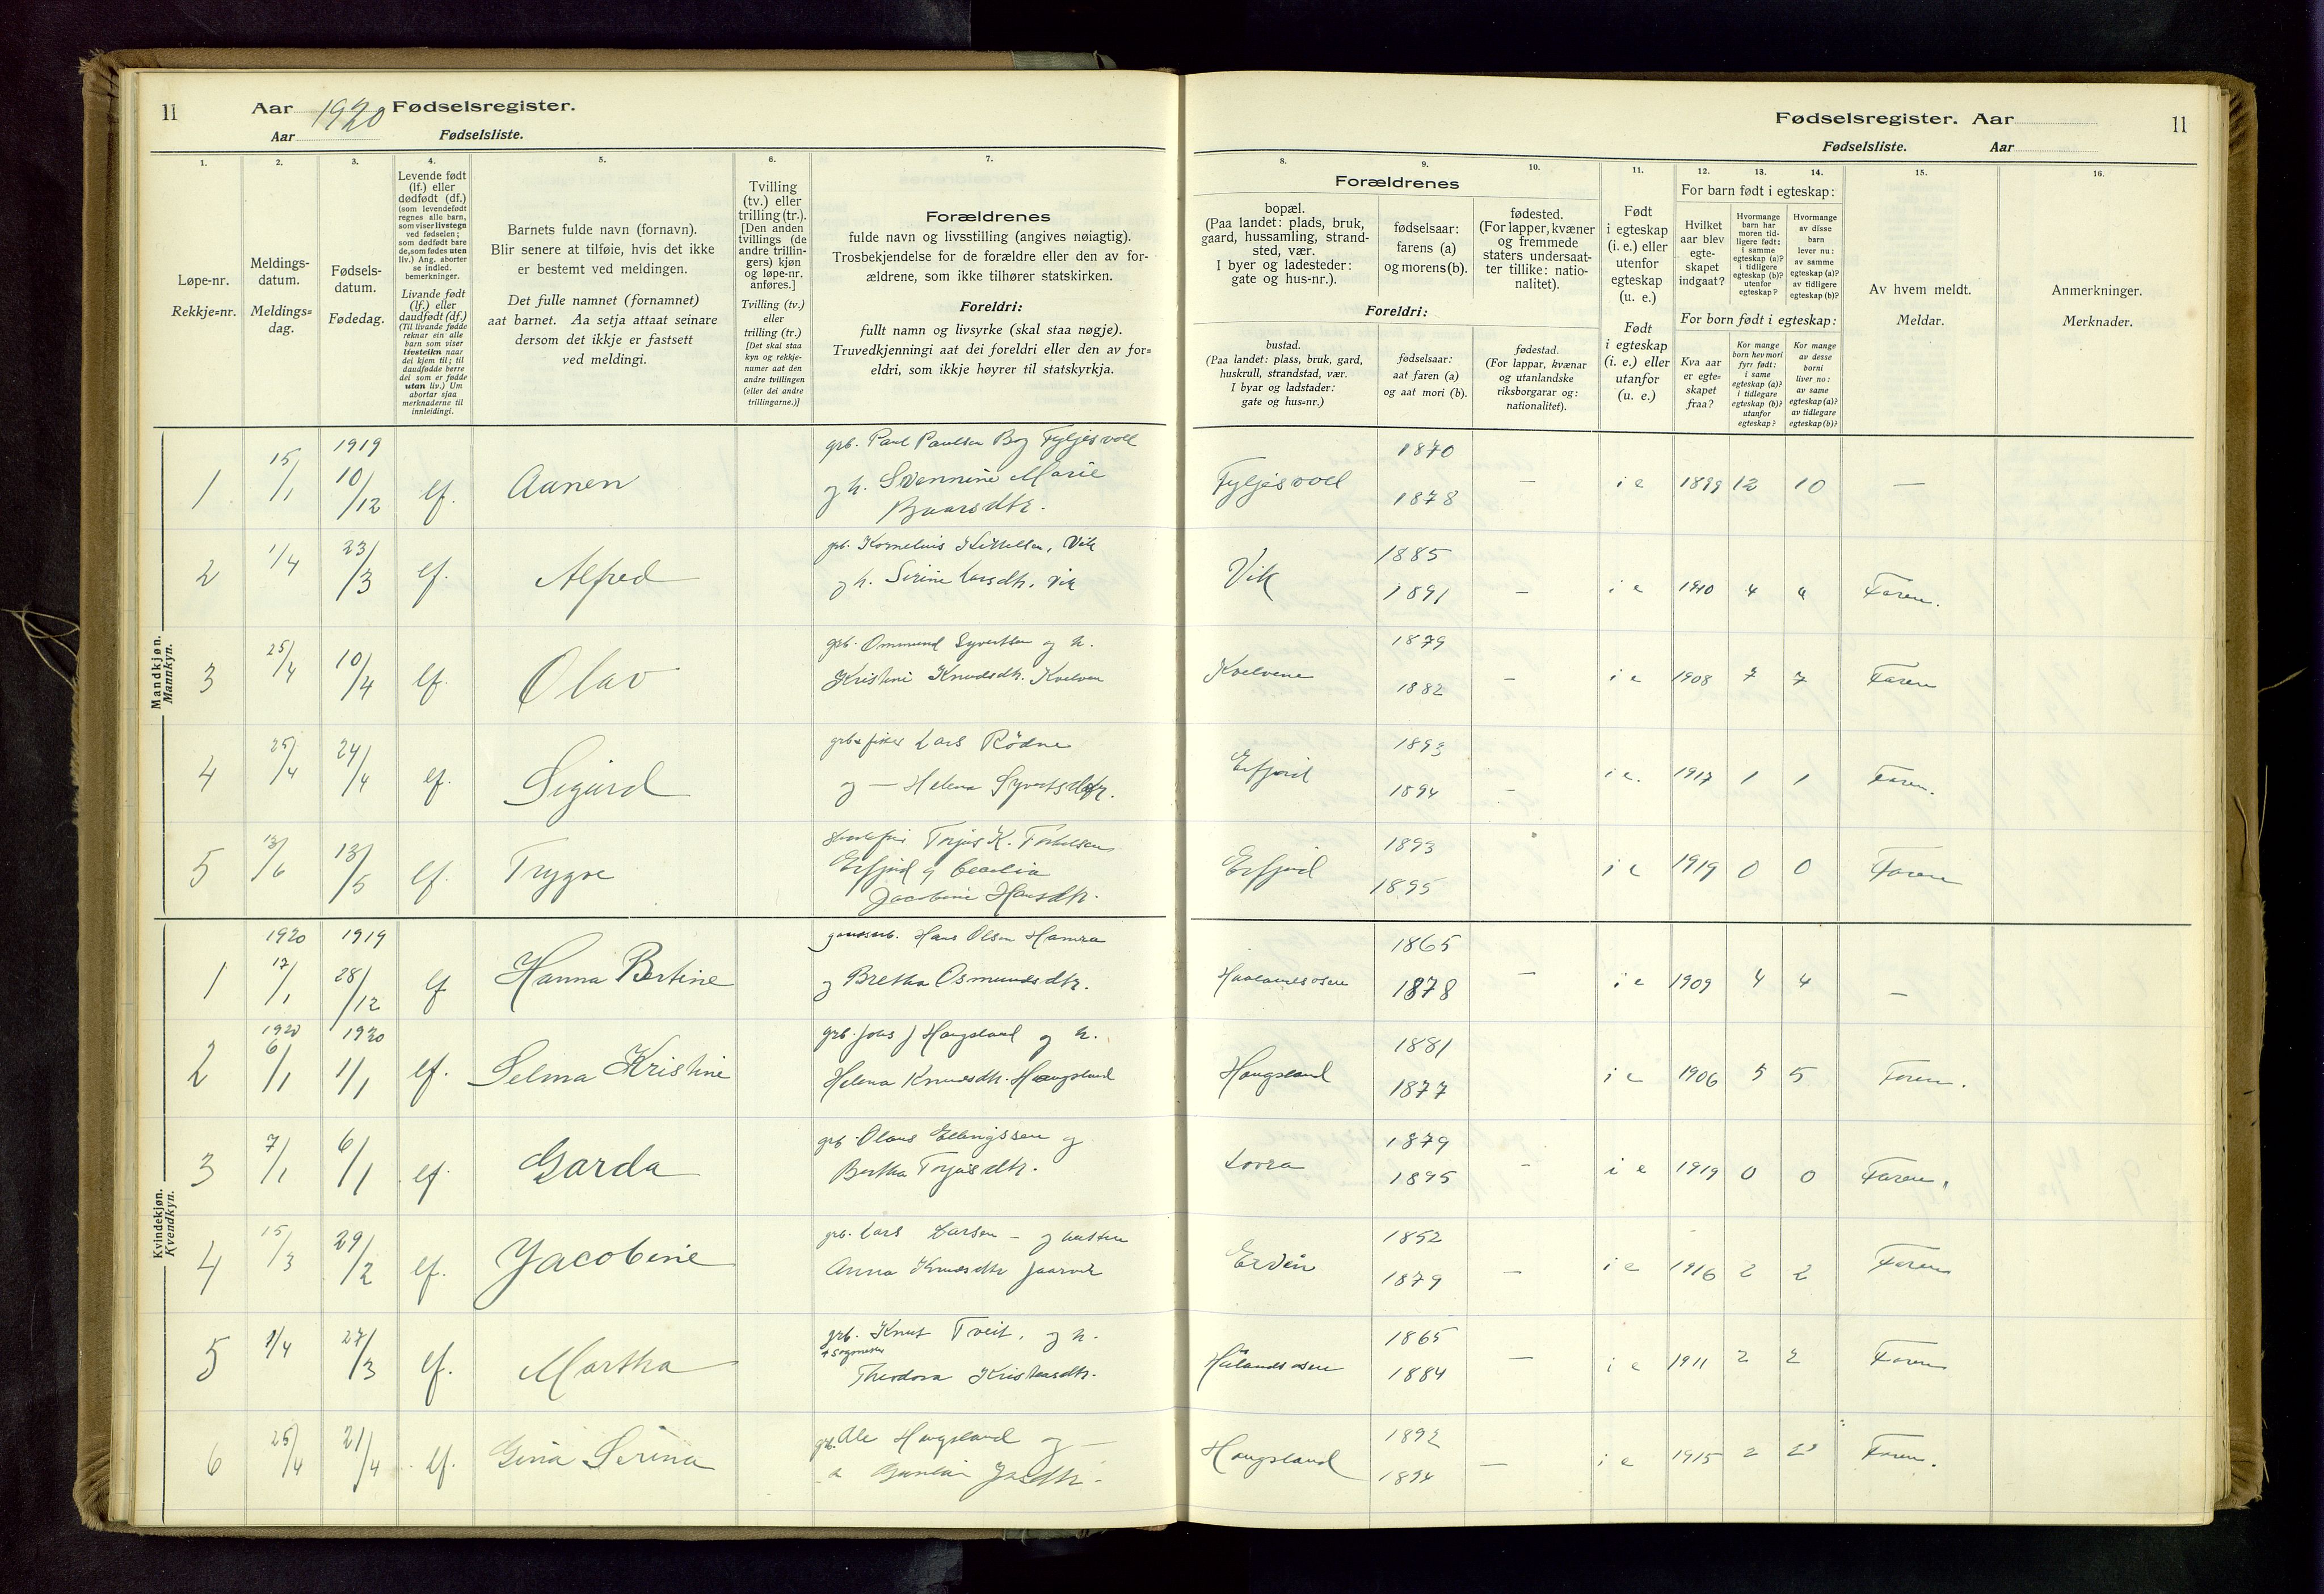 11 Aar 1920 Fødselsregister.
Aar Fødselsliste.
Fødselsregister. Aar 11
Fødselsliste. Aar
1. 2. 3. 4. 5. 6. 7. 8. 9. 10. 11. 12. 13. 14. 15. 16.
Løpe-nr.
Rekkje=nr.
Meldings-
datum.
Meldings=
dag.
Fødsels-
datum.
Fødedag.
Levende født
(lf.) eller
dødfødt (df.)
(som levendefødt
regnes alle barn,
som viser livstegn
ved fødselen;
som dødfødt bare
de, som fødes uten
liv.) Ang. aborter
se indled.
bemerkninger.
Livande født
(lf.) eller
daudfødt (df.)
(Til livande fødde
reknar ein alle
barn som viser
livsteikn naar
dei kjem til; til
daudfødde berre
dei som er fødde
utan liv.) Um
abortar sjaa
merknaderne til
innleidingi.
Barnets fulde navn (fornavn).
Blir senere at tilføie, hvis det ikke
er bestemt ved meldingen.
Det fulle namnet (fornamnet)
aat barnet. Aa setja attaat seinare
dersom det ikkje er fastsett
ved meldingi.
Tvilling
(tv.) eller
trilling (tr.).
[Den anden
tvillings (de
andre trillin-
gers) kjøn
og løpe-nr.
anføres.]
Tvilling (tv.)
eller
trilling (tr.)
[Det skal staa
kyn og rekkje-
numer aat den
andre tvillingen
(eller dei andre
trillingarne.)]
Forældrenes
fulde navn og livsstilling (angives nøiagtig).
Trosbekjendelse for de forældre eller den av for-
ældrene, som ikke tilhører statskirken.
Foreldri:
fullt namn og livsyrke (skal staa nøgje).
Truvedkjenningi aat dei foreldri eller den av for=
eldri, som ikkje høyrer til statskyrkja.
Forældrenes
bopæl.
(Paa landet: plads, bruk,
gaard, hussamling, strand-
sted, vær.
I byer og ladesteder:
gate og hus-nr.).
fødselsaar:
farens (a)
og morens (b).
fødested.
(For lapper, kvæner
og fremmede
staters undersaat-
ter tillike: natio-
nalitet).
Foreldri:
bustad.
(Paa landet: plass, bruk, gard,
huskrull, strandstad, vær.
I byar og ladstader:
gate og hus=nr.)
fødselsaar:
aat faren (a)
og aat mori (b).
fødestad.
(For lappar, kvænar
og utanlandske
riksborgarar og:
nationalitet).
Født
i egteskap
(i. e.) eller
utenfor
egteskap
(u. e.)
Født
i egteskap
(i. e.) eller
utanfor
(u. e.)
For barn født i egteskap:
Hvilket
aar blev
egte-
skapet
indgaat?
Hvormange
barn har
moren tid-
ligere født:
i samme
egteskap (a)?
i tidligere
egteskap (b)?
utenfor
egteskap?
Hvormange
av disse
barn
lever nu:
av samme
egteskap (a)?
av tidligere
egteskap (b)?
For born født i egteskap:
Kva aar
er egte=
skapet
fraa?
Kor mange
born hev mori
fyrr født:
i same
egteskap (a)?
i tidlegare
egteskap (b)?
utanfor
egteskap?
Kor mange
av desse
borni
liver no:
av same
egteskap (a)?
av tidlegare
egteskap (b)?
Av hvem meldt.
Meldar.
Anmerkninger.
Merknader.
Mandkjøn.
Mannkyn.
1 15/1 1919 10/12 lf. Aanen
grb. Paul Paulsen Bog Fyljesvoll
og h. Svennine Marie
Baardsdtr.
Fyljesvoll 1870 1878 — i e 1899 12 10 —
2 1/4 23/3 lf. Alfred
grb. Kornelius Kittelsen, Vik
og h. Serine Larsdtr. Vik
Vik 1885 1891 — i e 1910 4 4 Faren.
3 25/4 10/4 lf. Olav
grb. Ommund Syvertsen og h.
Kristine Knudsdtr. Kvelven
Kvelvene 1879 1882 — i e 1908 7 7 Faren
4 25/4 24/4 lf. Sigurd
grb + fisker Lars Rödne
og — Helena Syvertsdtr.
Erfjord 1893 1894 — i e. 1917 1 1 Faren.
5 13/6 13/5 lf. Trygve
Torjus K.
Erfjord og Cecelia
Jacobine Hansdtr.
Erfjord 1893 1895 i e 1919 0 0 Faren
Kvindekjøn.
Kvendkyn.
1 1920 17/1 1919 28/12 lf Hanna Bertine
gaardarb. Hans Olsen Hamra
og Bretha Osmundsdtr.
Haalandsosen 1865 1878 — i e 1909 4 4 —
2 1920 6/1 1920 1/1 lf. Selma Kristine
grb. Joas J Haugsland og h.
Helena Knudsdtr. Haugsland
Haugsland 1881 1877 i e 1906 5 5 Faren.
3 7/1 6/1 lf. Garda
grb. Olaus Ellingssen og
Bertha Torjusdtr.
Lovra 1879 1895 — i e 1919 0 0 Faren.
4 15/3 29/2 lf. Jacobine
grb. Lars Larsen — og hustru
Anna Knudsdtr Jaarvik
1852 1879 — i e 1916 2 2 Faren
5 1/4 27/3 lf. Martha
grb. Knut Tveit, og h.
Theodora Kristensdtr.
Hålandsosen 1865 1884 — i e 1911 2 2 Faren
6 25/4 21/4 lf. Gina Serina
grb. Ole Haugsland og —
Haugsland 1892 1894 — i e 1915 2 2 Faren.